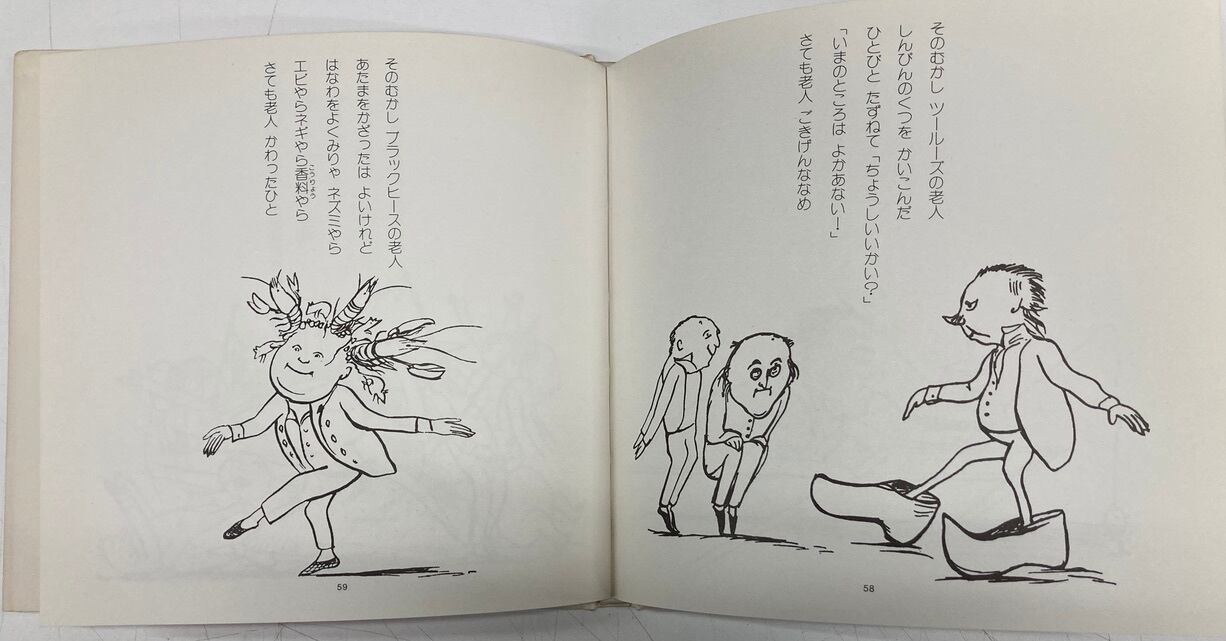 そのむかし ツールーズの老人
しんぴんのくつを かいこんだ
ひとびと たずねて「ちょうしいいかい?」
「いまのところは よかあない!」
さても老人 ごきげんななめ
58
そのむかし ブラックヒースの老人
あたまをかざったは よいけれど
はなわをよくみりゃ ネズミやら
エビやらネギやら香料やら
こうりょう
さても老人 かわったひと
59